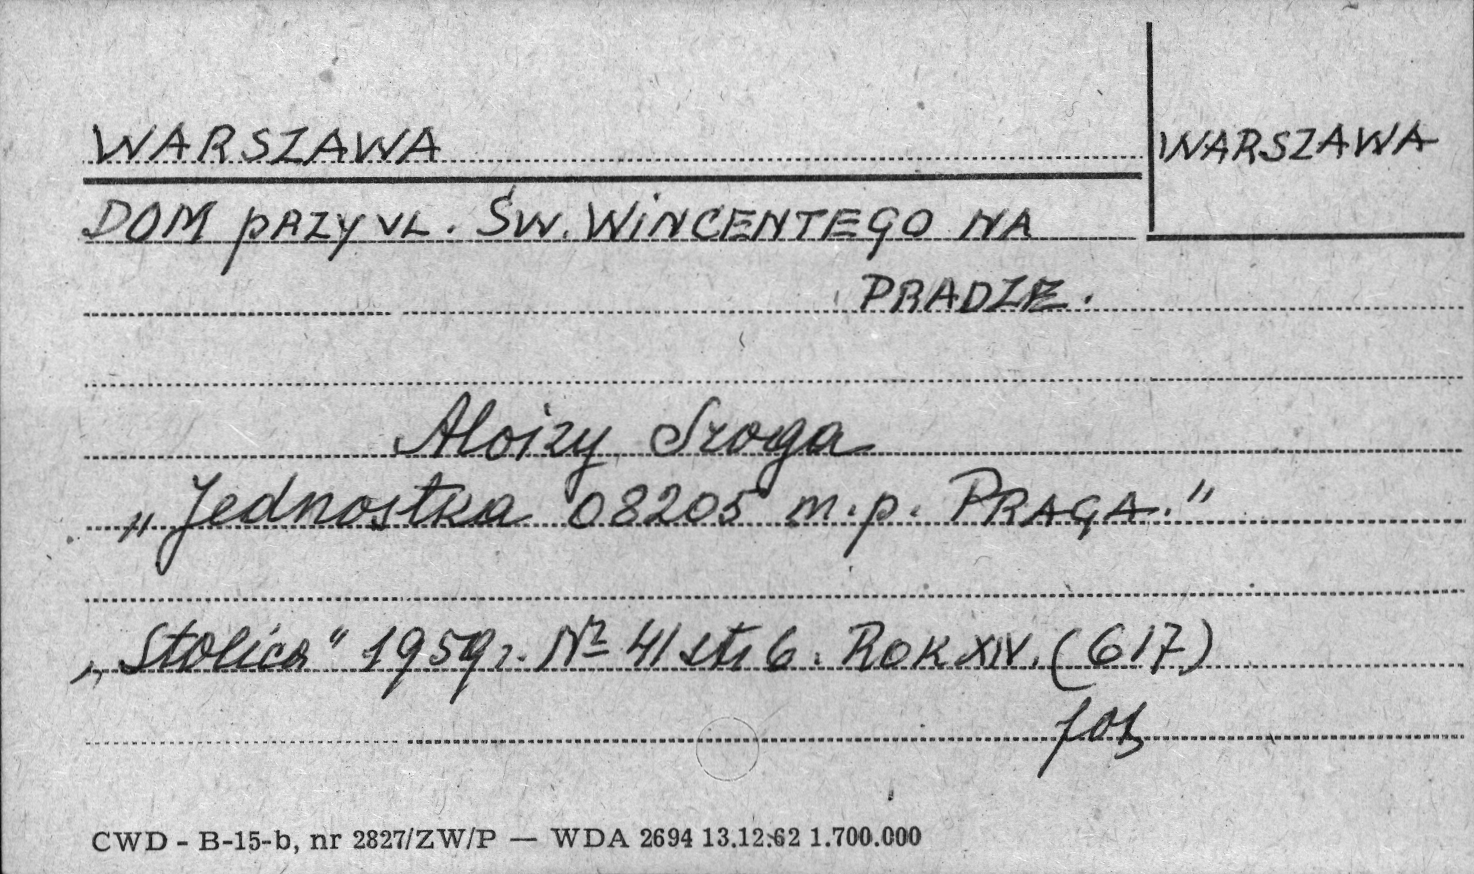 WARSZAWA
WARSZAWA
DOM pRZY UL. ŚW. WiNCENTEGO NA
PRADZE.
Aloizy Sroga
„Jednostka 08205 m.p. PRAGA."
„Stolica" 1959r. Nr 41 str 6. ROK XIV. (617)
fot
CWD - B-15-b, nr 2827/ZW/P — WDA 2694 13.12.62 1.700.000